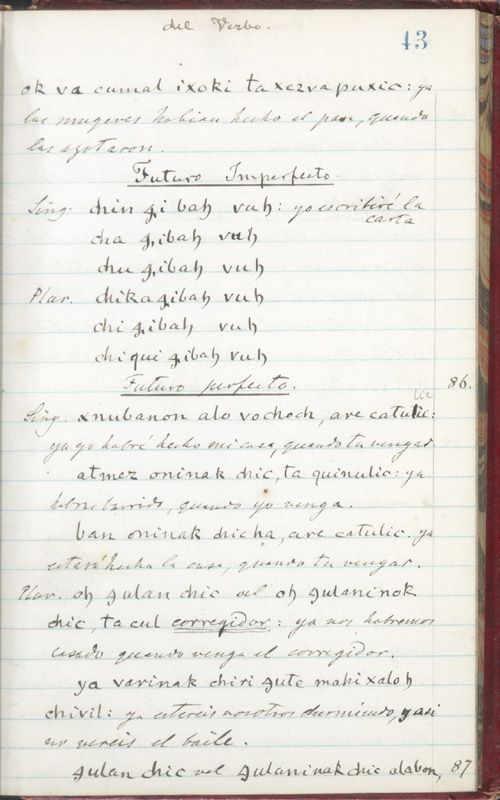 del Verbo.
43
ok va cumal ixoki ta xezvapuxic: ya
las mugeres habian hecho el pan, quando
las azotaron.
Futuro Imperfecto.
Sing. chin ꜯibaꜧ vuꜧ: yo escribiré la
carta
cha ꜯibaꜧ vuꜧ
chu ꜯibaꜧ vuꜧ
Plur. chikaꜯibaꜧ vuꜧ
chi ꜯibaꜧ vuꜧ
chiqui ꜯibaꜧ vuꜧ
Futuro perfecto. 86.
lic
Sing. xnubanon alo vochoch, are catulic:
ya yo habré hecho mi casa, quando tu vengas.
atmez oninak chic, ta quinulic: ya
habras barrido, quando yo venga.
ban oninak chic ha, are catulic. ya
estará hecha la casa, quando tu vengas.
Plur. oꜧ ꜭulan chic vel oꜧ ꜭulaninok
chic, ta cul corregidor: ya nos habremos
casado quando venga el corregidor.
ya varinak chiri ꜭute mahi xaloꜧ
chivil: ya estereis vosotros durmiendo, y asi
no vereis el baile.
ꜭulan chic vel ꜭulaninak chic alabon, 87